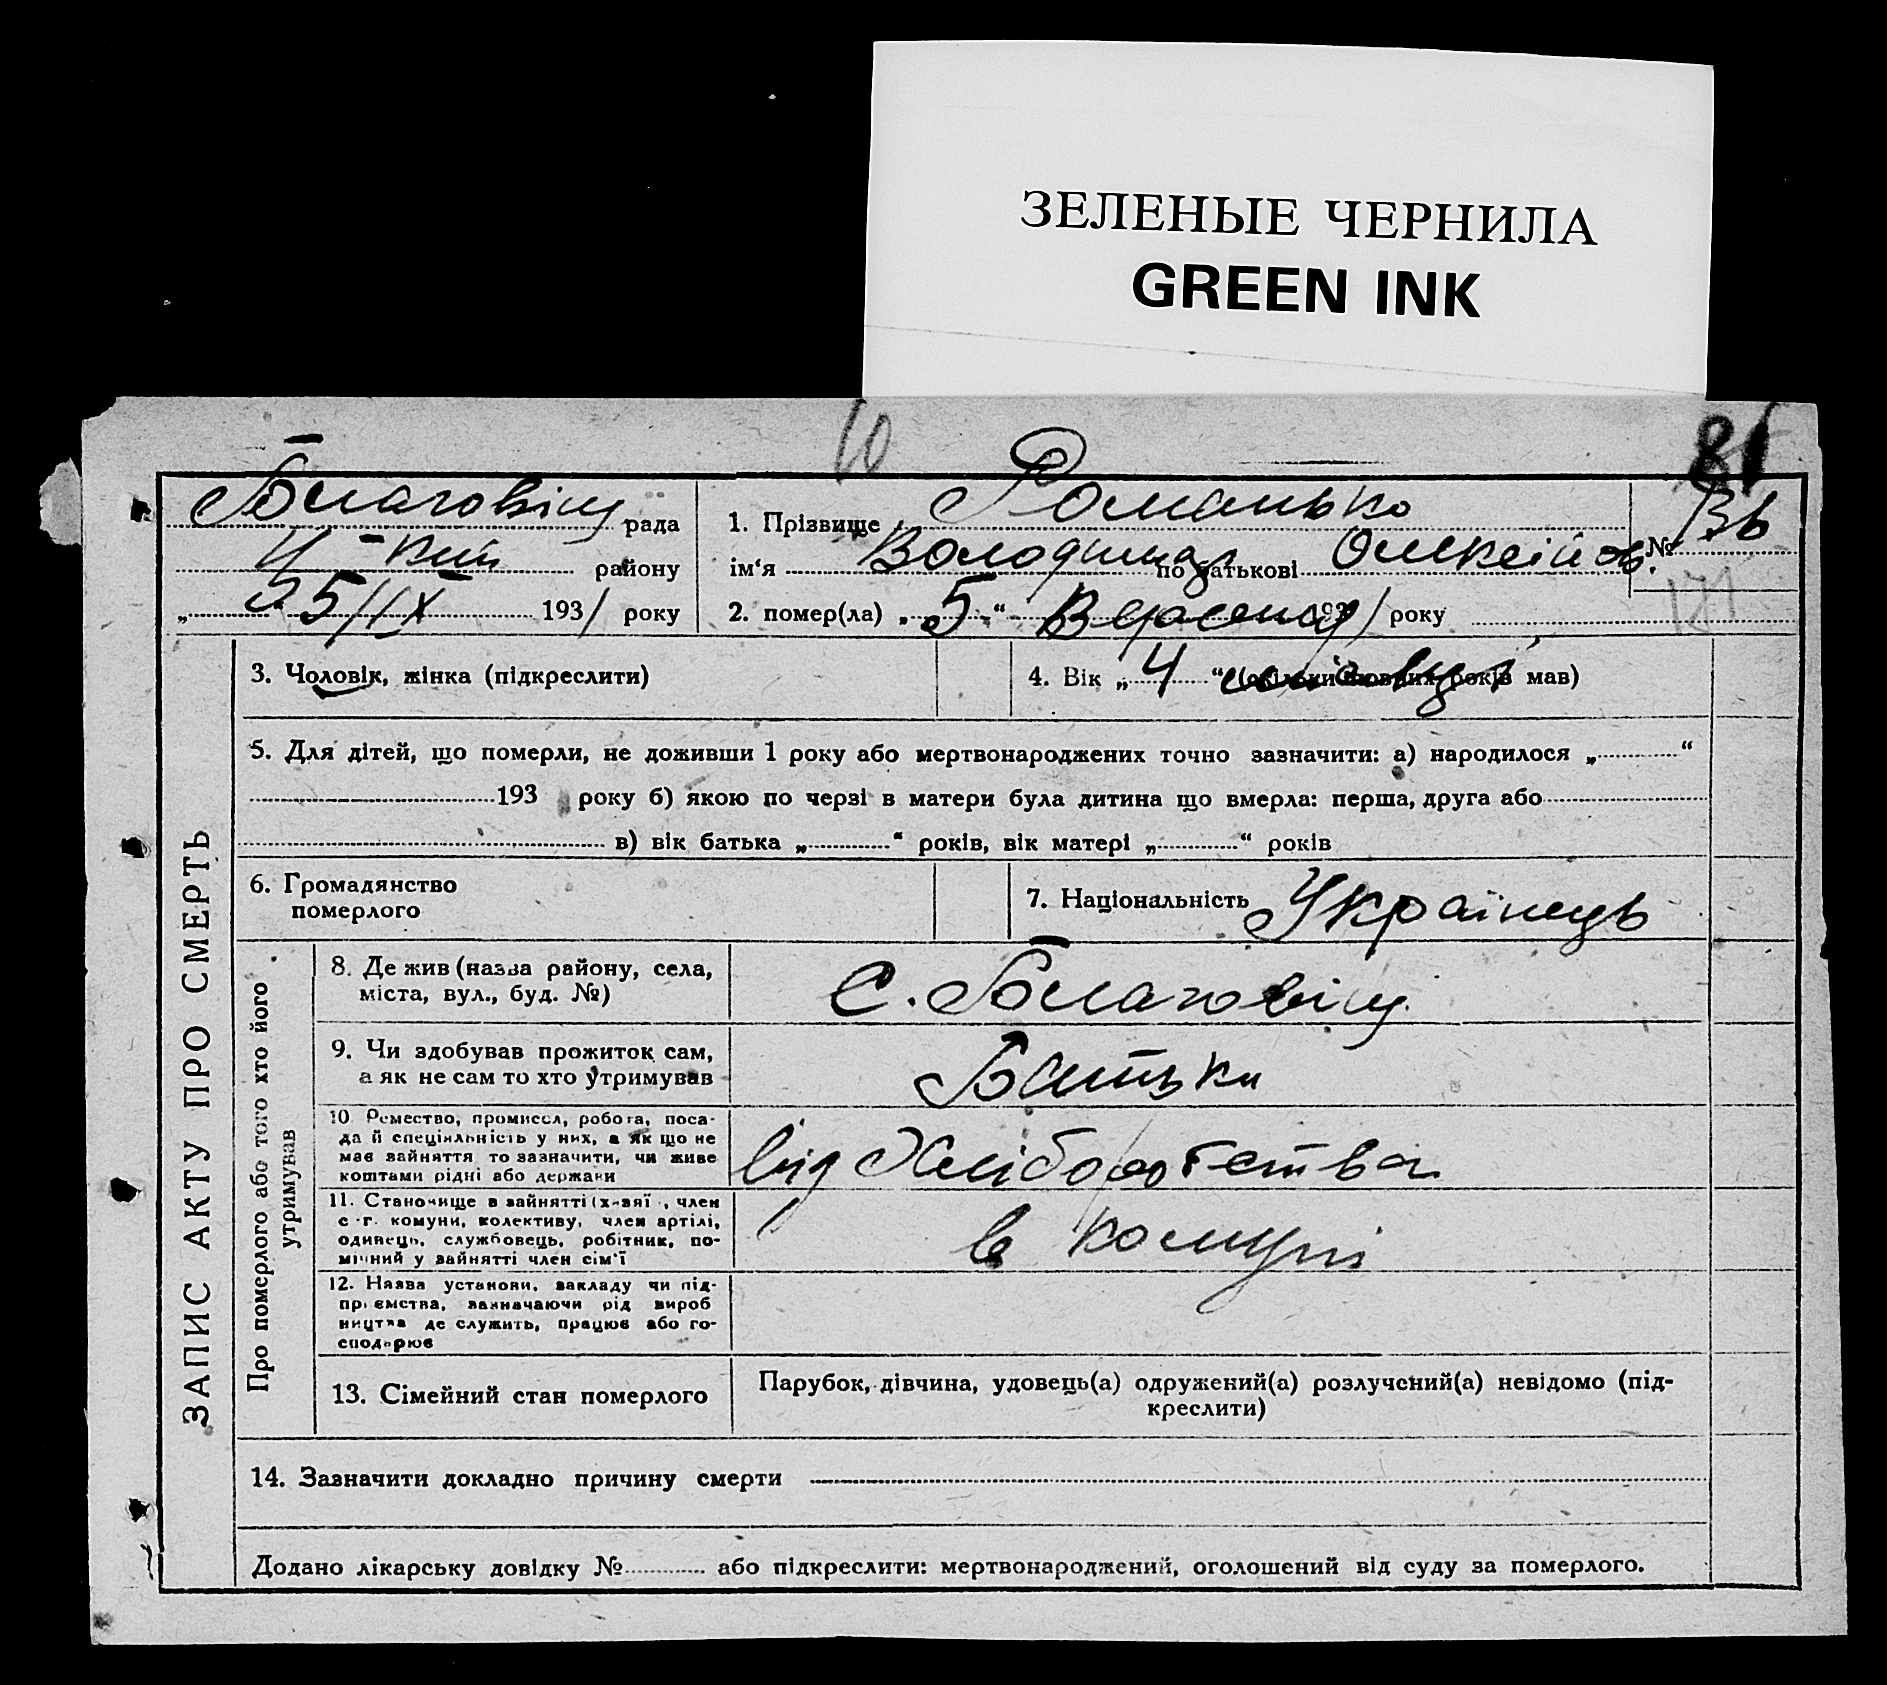 ЗЕЛЕНЫЕ ЧЕРНИЛА
GREEN INK
10
81
Благовіщ рада
районy
„ 25/IX 1931 року
1. Прізвище Романько
ім‘я Володимир по батькові Олексійов.
№ 36
171
2. помер(ла) „ 5 “ Вересня 1931 року
ЗАПИС АКТУ ПРО СМЕРТЬ
3. Чоловік, жінка (підкреслити)
4. Вік „ 4 “ місяці (скільки повних років мав)
5. Для дітей, що померли, не доживши 1 року або мертвонароджених точно зазначити: а) народилося „ “
193 року б) якою по черзі в матери була дитина що вмерла: перша, друга або
в) вік батька „ “ років, вік матері „ “ років
6. Громадянство
померлого
7. Національність Українець
Про померлого або того хто його
утримував
8. Де жив (назва району, села,
міста, вул., буд. №)
с. Благовіщ.
9. Чи здобував прожиток сам,
а як не сам то хто утримував
Батьки
10. Ремество, промисел, робота, поса-
да й спеціяльність у них, а як що не
має зайняття то зазначити, чи живе
коштами рідні або держави
від Хліборобства
11. Становище в зайнятті (х-зяї , член
с.-г. комуни, колективу, член артілі,
одинець, службовець, робітник, по-
мічний у зайнятті член сім‘ї
в комуні
12. Назва установи, закладу чи під-
приємства, зазначаючи рід вироб
ництва де служить, працює або го-
сподарює
13. Сімейний стан померлого
Парубок, дівчина, удовець(а) одружений(а) розлучений(а) невідомо (під-
креслити)
14. Зазначити докладно причину смерти
Додано лікарську довідку № або підкреслити: мертвонароджений, оголошений від суду за померлого.